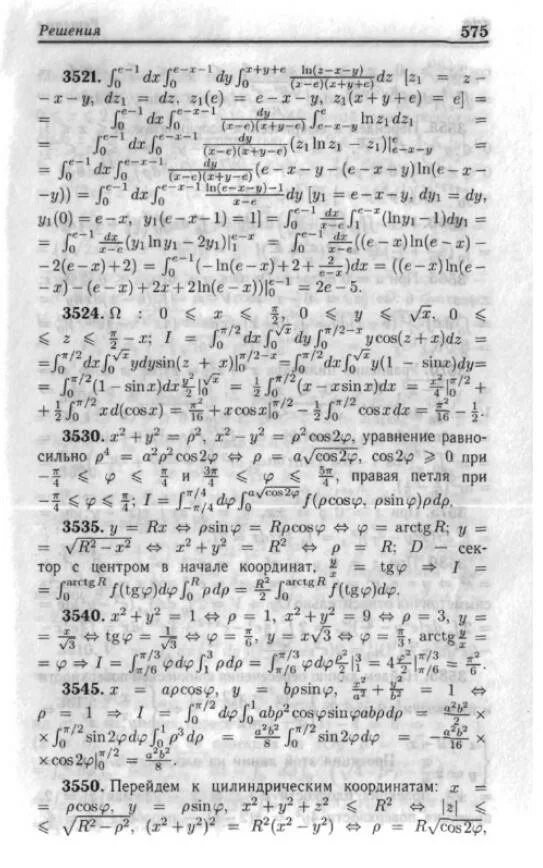 Решения 575
3521. ∫₀^{e−1} dx ∫₀^{e−x−1} dy ∫₀^{x+y+e} ln(z−x−y)/((x−e)(x+y+e)) dz [z₁ = z −
− x − y, dz₁ = dz, z₁(e) = e − x − y, z₁(x + y + e) = e] =
= ∫₀^{e−1} dx ∫₀^{e−x−1} dy/((x−e)(x+y−e)) ∫_{e−x−y}^{e} ln z₁ dz₁ =
= ∫₀^{e−1} dx ∫₀^{e−x−1} dy/((x−e)(x+y−e)) (z₁ ln z₁ − z₁)|^{e}_{e−x−y} =
= ∫₀^{e−1} dx ∫₀^{e−x−1} dy/((x−e)(x+y−e)) (e − x − y − (e − x − y)ln(e − x −
−y)) = ∫₀^{e−1} dx ∫₀^{e−x−1} (ln(e−x−y)−1)/(x−e) dy [y₁ = e − x − y, dy₁ = dy,
y₁(0) = e − x, y₁(e − x − 1) = 1] = ∫₀^{e−1} dx/(x−e) ∫₁^{e−x} (lny₁ − 1)dy₁ =
= ∫₀^{e−1} dx/(x−e) (y₁lny₁ − 2y₁)|₁^{e−x} = ∫₀^{e−1} dx/(x−e) ((e − x)ln(e − x) −
−2(e − x) + 2) = ∫₀^{e−1} (− ln(e − x) + 2 + 2/(x−e))dx = ((e − x)ln(e −
− x) − (e − x) + 2x + 2ln(e − x))|₀^{e−1} = 2e − 5.
3524. Ω : 0 ⩽ x ⩽ π/2, 0 ⩽ y ⩽ √x, 0 ⩽
⩽ z ⩽ π/2 − x; I = ∫₀^{π/2} dx ∫₀^{√x} dy ∫₀^{π/2−x} ycos(z + x)dz =
= ∫₀^{π/2} dx ∫₀^{√x} ydysin(z + x)|₀^{π/2−x} = ∫₀^{π/2} dx ∫₀^{√x} y(1 − sinx)dy =
= ∫₀^{π/2} (1 − sinx)dx y²/2|₀^{√x} = 1/2 ∫₀^{π/2} (x − xsinx)dx = x²/4|₀^{π/2} +
+ 1/2 ∫₀^{π/2} xd(cosx) = π²/16 + xcosx|₀^{π/2} − 1/2 ∫₀^{π/2} cosxdx = π²/16 − 1/2.
3530. x² + y² = ρ², x² − y² = ρ²cos2φ, уравнение равно-
сильно ρ⁴ = a²ρ²cos2φ ⇔ ρ = a√cos2φ, cos2φ ⩾ 0 при
−π/4 ⩽ φ ⩽ π/4 и 3π/4 ⩽ φ ⩽ 5π/4, правая петля при
−π/4 ⩽ φ ⩽ π/4; I = ∫_{−π/4}^{π/4} dφ ∫₀^{a√cos2φ} f(ρcosφ, ρsinφ)ρdρ,
3535. y = Rx ⇔ ρsinφ = Rρcosφ ⇔ φ = arctgR; y =
= √(R² − x²) ⇔ x² + y² = R² ⇔ ρ = R; D — сек-
тор с центром в начале координат, y/x = tgφ ⇒ I =
= ∫₀^{arctgR} f(tgφ)dφ ∫₀^{R} ρdρ = R²/2 ∫₀^{arctgR} f(tgφ)dφ.
3540. x² + y² = 1 ⇔ ρ = 1, x² + y² = 9 ⇔ ρ = 3, y =
= x/√3 ⇔ tgφ = 1/√3 ⇔ φ = π/6, y = x√3 ⇔ φ = π/3, arctg y/x =
= φ ⇒ I = ∫_{π/6}^{π/3} φdφ ∫₁³ ρdρ = ∫_{π/6}^{π/3} φdφ ρ²/2|₁³ = 4 φ²/2|_{π/6}^{π/3} = π²/6.
3545. x = aρcosφ, y = bρsinφ, x²/a² + y²/b² = 1 ⇔
ρ = 1 ⇒ I = ∫₀^{π/2} dφ ∫₀¹ abρ²cosφsinφabρdρ = a²b²/2 ×
× ∫₀^{π/2} sin2φdφ ∫₀¹ ρ³dρ = a²b²/8 ∫₀^{π/2} sin2φdφ = −a²b²/16 ×
× cos2φ|₀^{π/2} = a²b²/8.
3550. Перейдем к цилиндрическим координатам: x =
= ρcosφ, y = ρsinφ, x² + y² + z² ⩽ R² ⇔ |z| ⩽
⩽ √(R² − ρ²), (x² + y²)² = R²(x² − y²) ⇔ ρ = R√cos2φ,